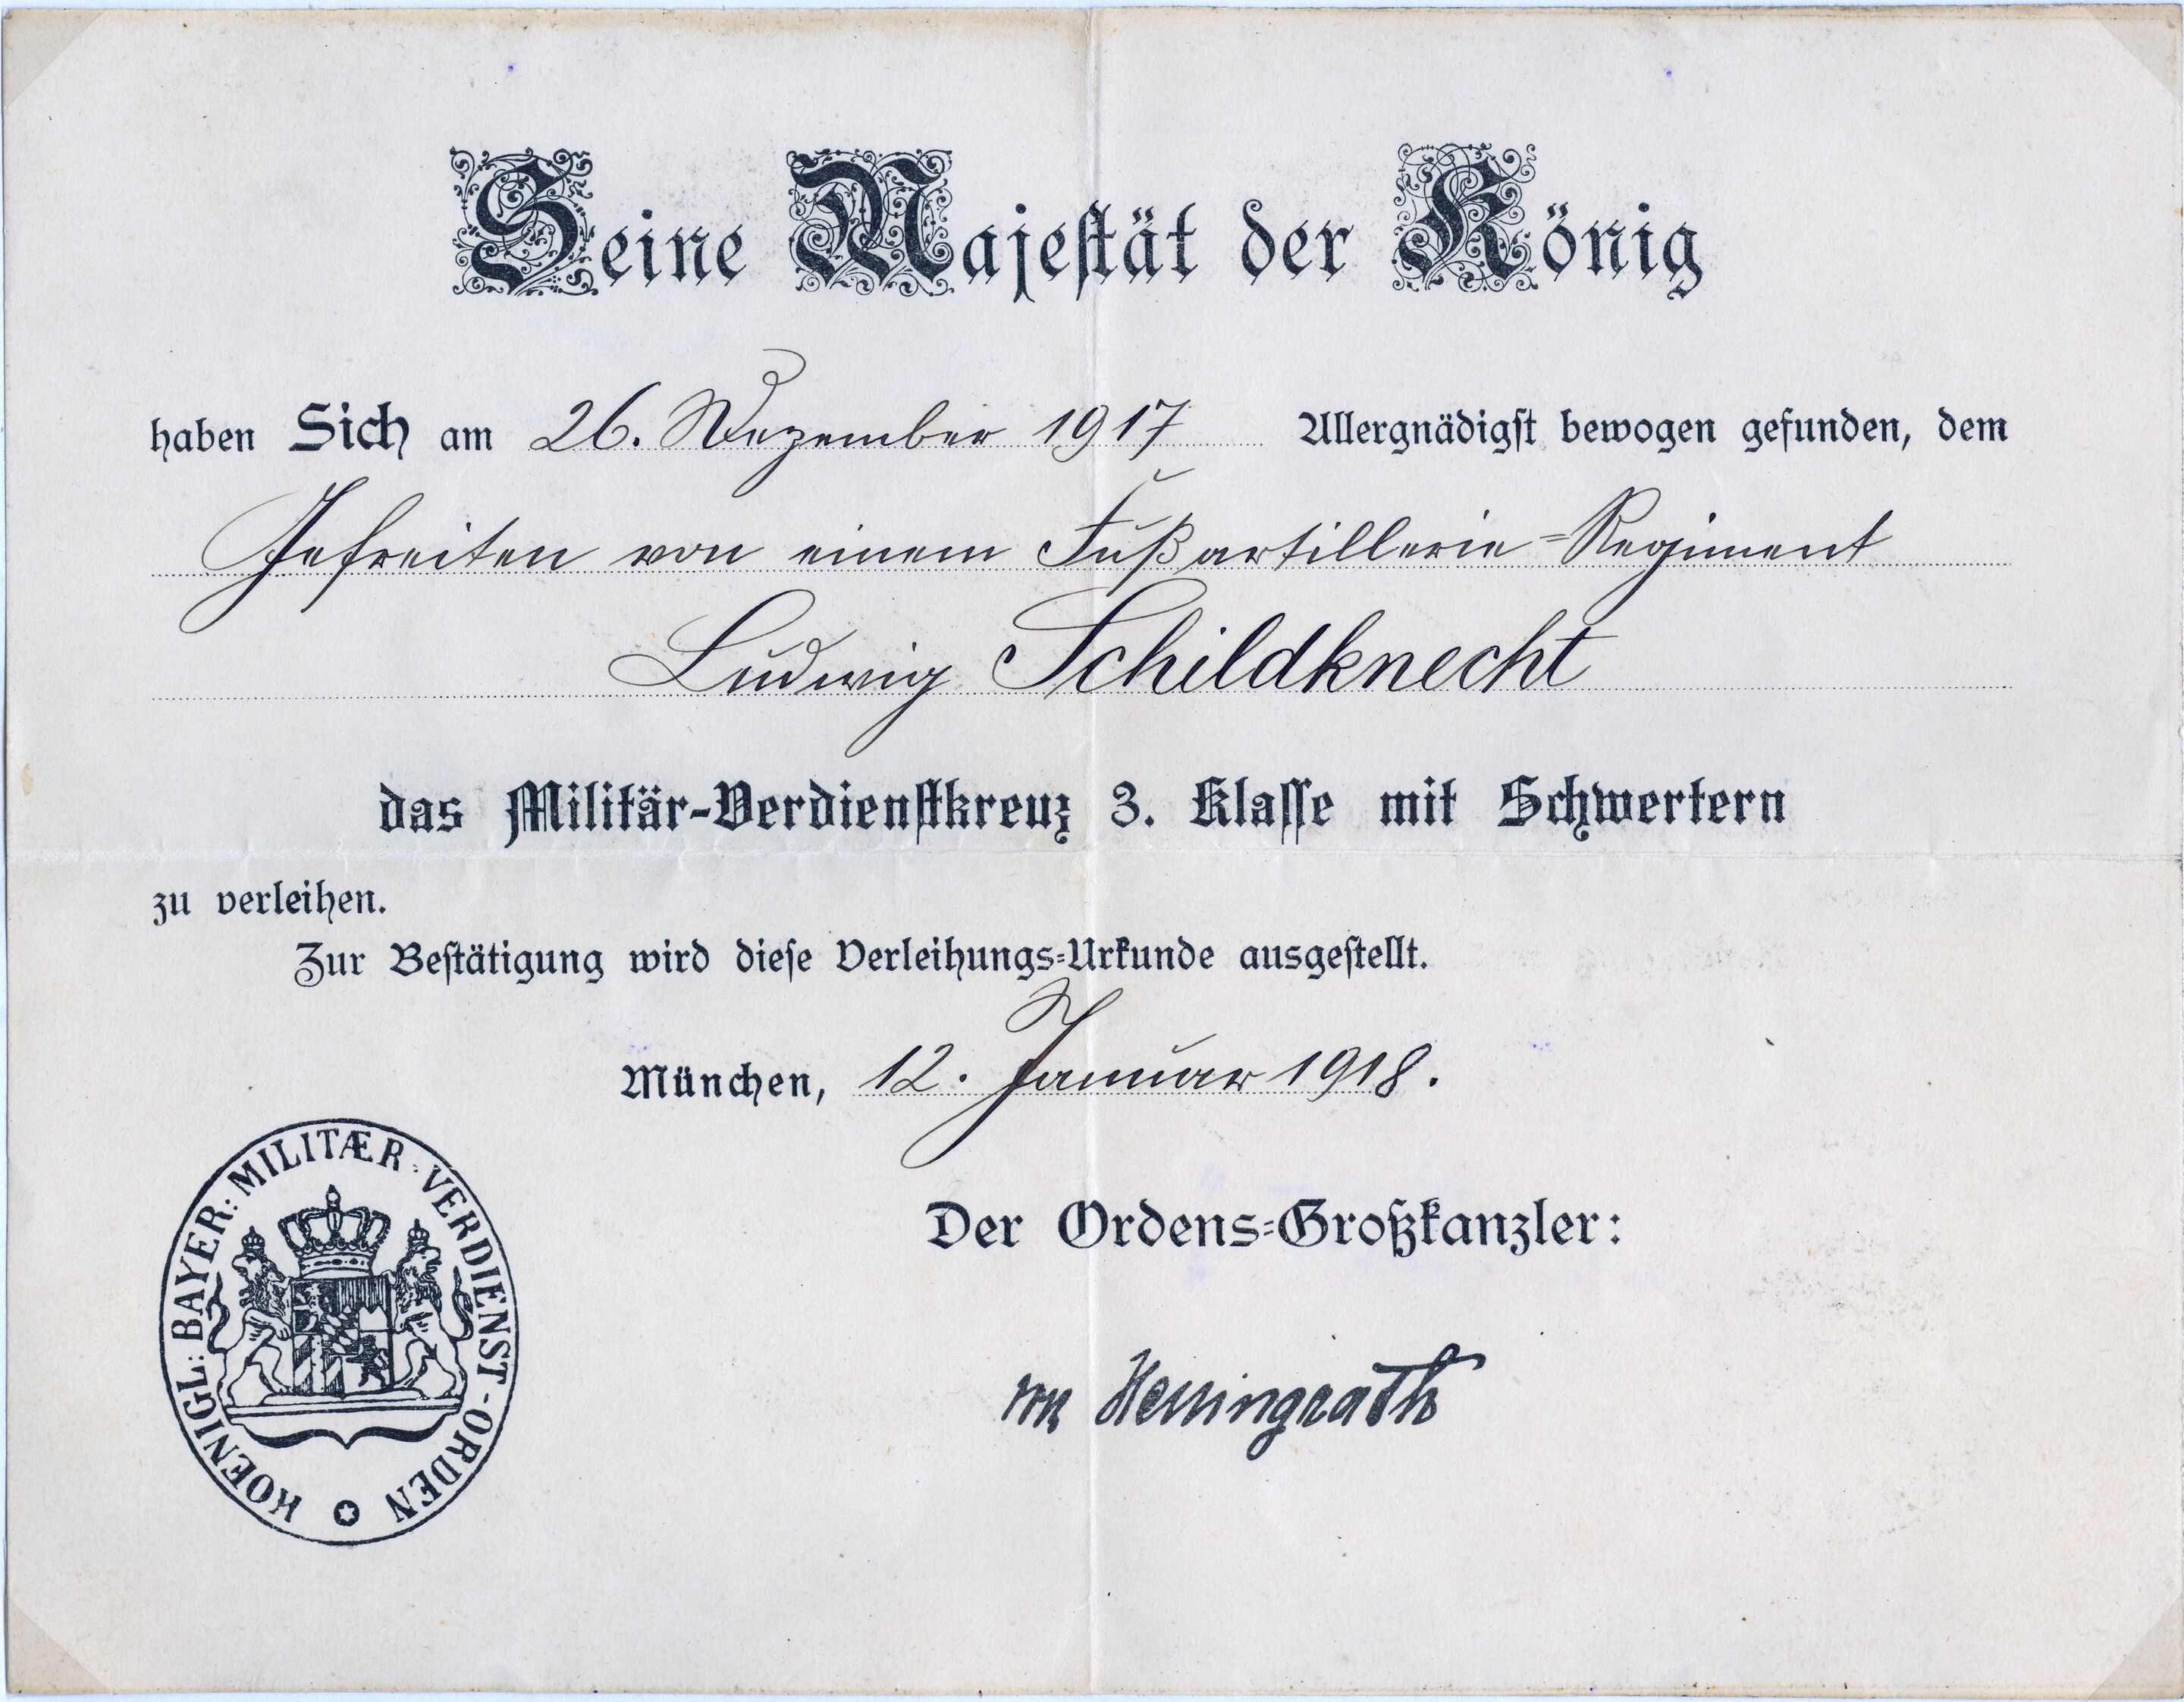 Seine Majestät der König
haben Sich am 26. Dezember 1917 Allergnädigst bewogen gefunden, dem
Gefreiten von einem Fußartillerie-Regiment
Ludwig Schildknecht
das Militär-Verdienstkreuz 3. Klasse mit Schwertern
zu verleihen.
Zur Bestätigung wird diese Verleihungs-Urkunde ausgestellt.
München, 12. Januar 1918.
Der Ordens-Großkanzler:
von Hellingrath
KOENIGL: BAYER: MILITÆR-VERDIENST-ORDEN